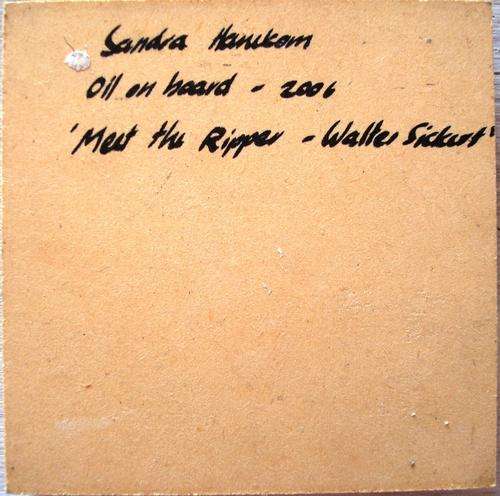 Sandra Hanekom
Oil on board - 2006
'Meet the Ripper - Walter Sickert'